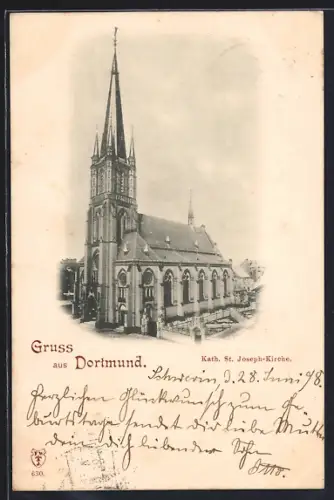 Gruss
aus Dortmund.
Kath. St. Joseph-Kirche.
Schwerin 3. 28 Juni 98.
Herzlichen Glückwunsch zum Ge-
burtstage sendet dir liebe Mutter
dein dich liebender Sohn
Otto.
430.